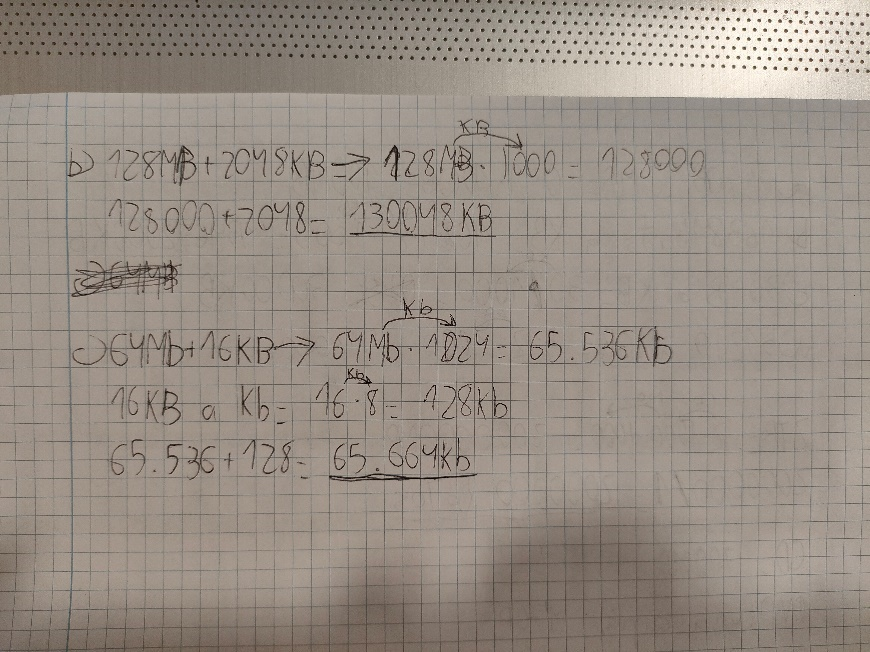 KB
b) 128MB+2048KB=> 128MB · 1000 = 128000
128000+2048= 130048KB
Kb
c) 64Mb+16KB-> 64Mb · 1024 = 65.536Kb
Kb
16KB a Kb= 16·8= 128kb
65.536+128= 65.664kb